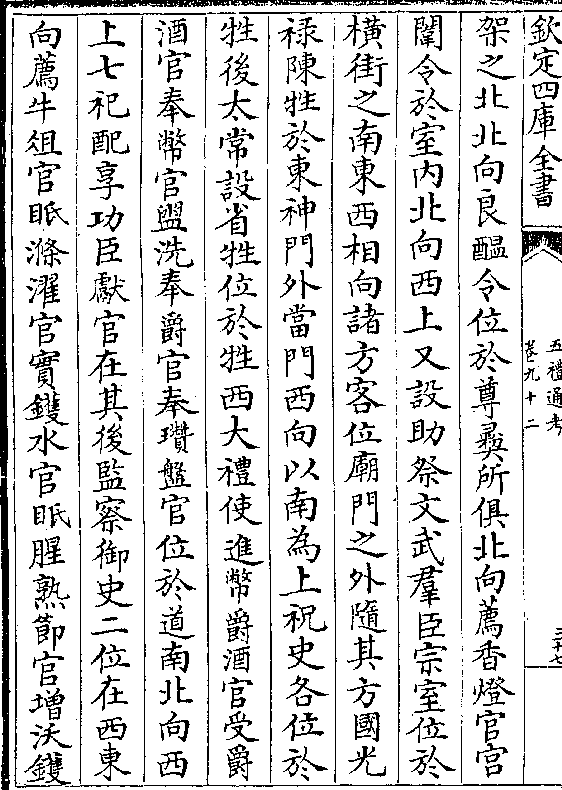 欽定四庫全書
五禮通考
卷九十二
三十七
架之北北向良醖令位於尊彞所俱北向薦香燈官宫
闈令於室内北向西上又設助祭文武羣臣宗室位於
橫街之南東西相向諸方客位廟門之外隨其方國光
禄陳牲於東神門外當門西向以南為上祝史各位於
牲後太常設省牲位於牲西大禮使進幣爵酒官受爵
酒官奉幣官盥洗奉爵官奉瓚盤官位於道南北向西
上七祀配享功臣獻官在其後監察御史二位在西東
向薦牛俎官眂滌濯官實鑊水官眂腥熟節官增沃鑊